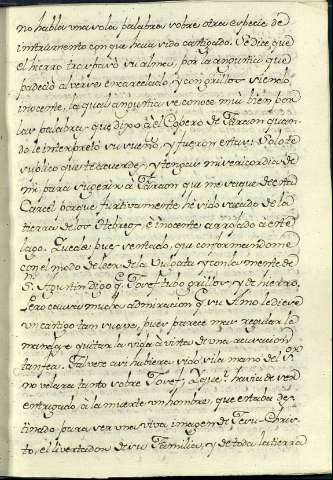 no habla una sola palabra sobre otra especie de
instrumento con que haia sido castigado. Se dice que
el hierro traspasò su alma, por la angustia que
padeciò al verse encarcelado, y con grillos siendo
inocente, la qual angustia se conoce mui bien por
las palabras, que dixo à el Copero de Faraon quan-
do le interpretò su sueño, y fueron estas: Solo te
suplico que te acuerdes, y tengas misericordia de
mi, para sugerir à Faraon que me saque de esta
Carcel porque furtivamente he sido sacado de la
tierra de los Hebreos, è inocente arrojado à este
lago. Quede pues sentado, que conformandome
con el modo de leer de la Vulgata, y con la mente de
S. Agustin digo q.e Josef tubo grillos, y de hierro,
Pero causa mucha admiracion q.e su Amo le diese
un castigo tan suave, pues parece mas regular le
mandase quitar la vida à vista de una acusacion
tan fea. Tal vez asi hubiera sido si la mano del S.or
no velara tanto sobre Josef; Aquel havia de ser
entregado à la muerte un hombre, que estaba des-
tinado para ser una viva imagen de Jesu-Chris-
to, el libertador de su Familia, y de toda la tierra